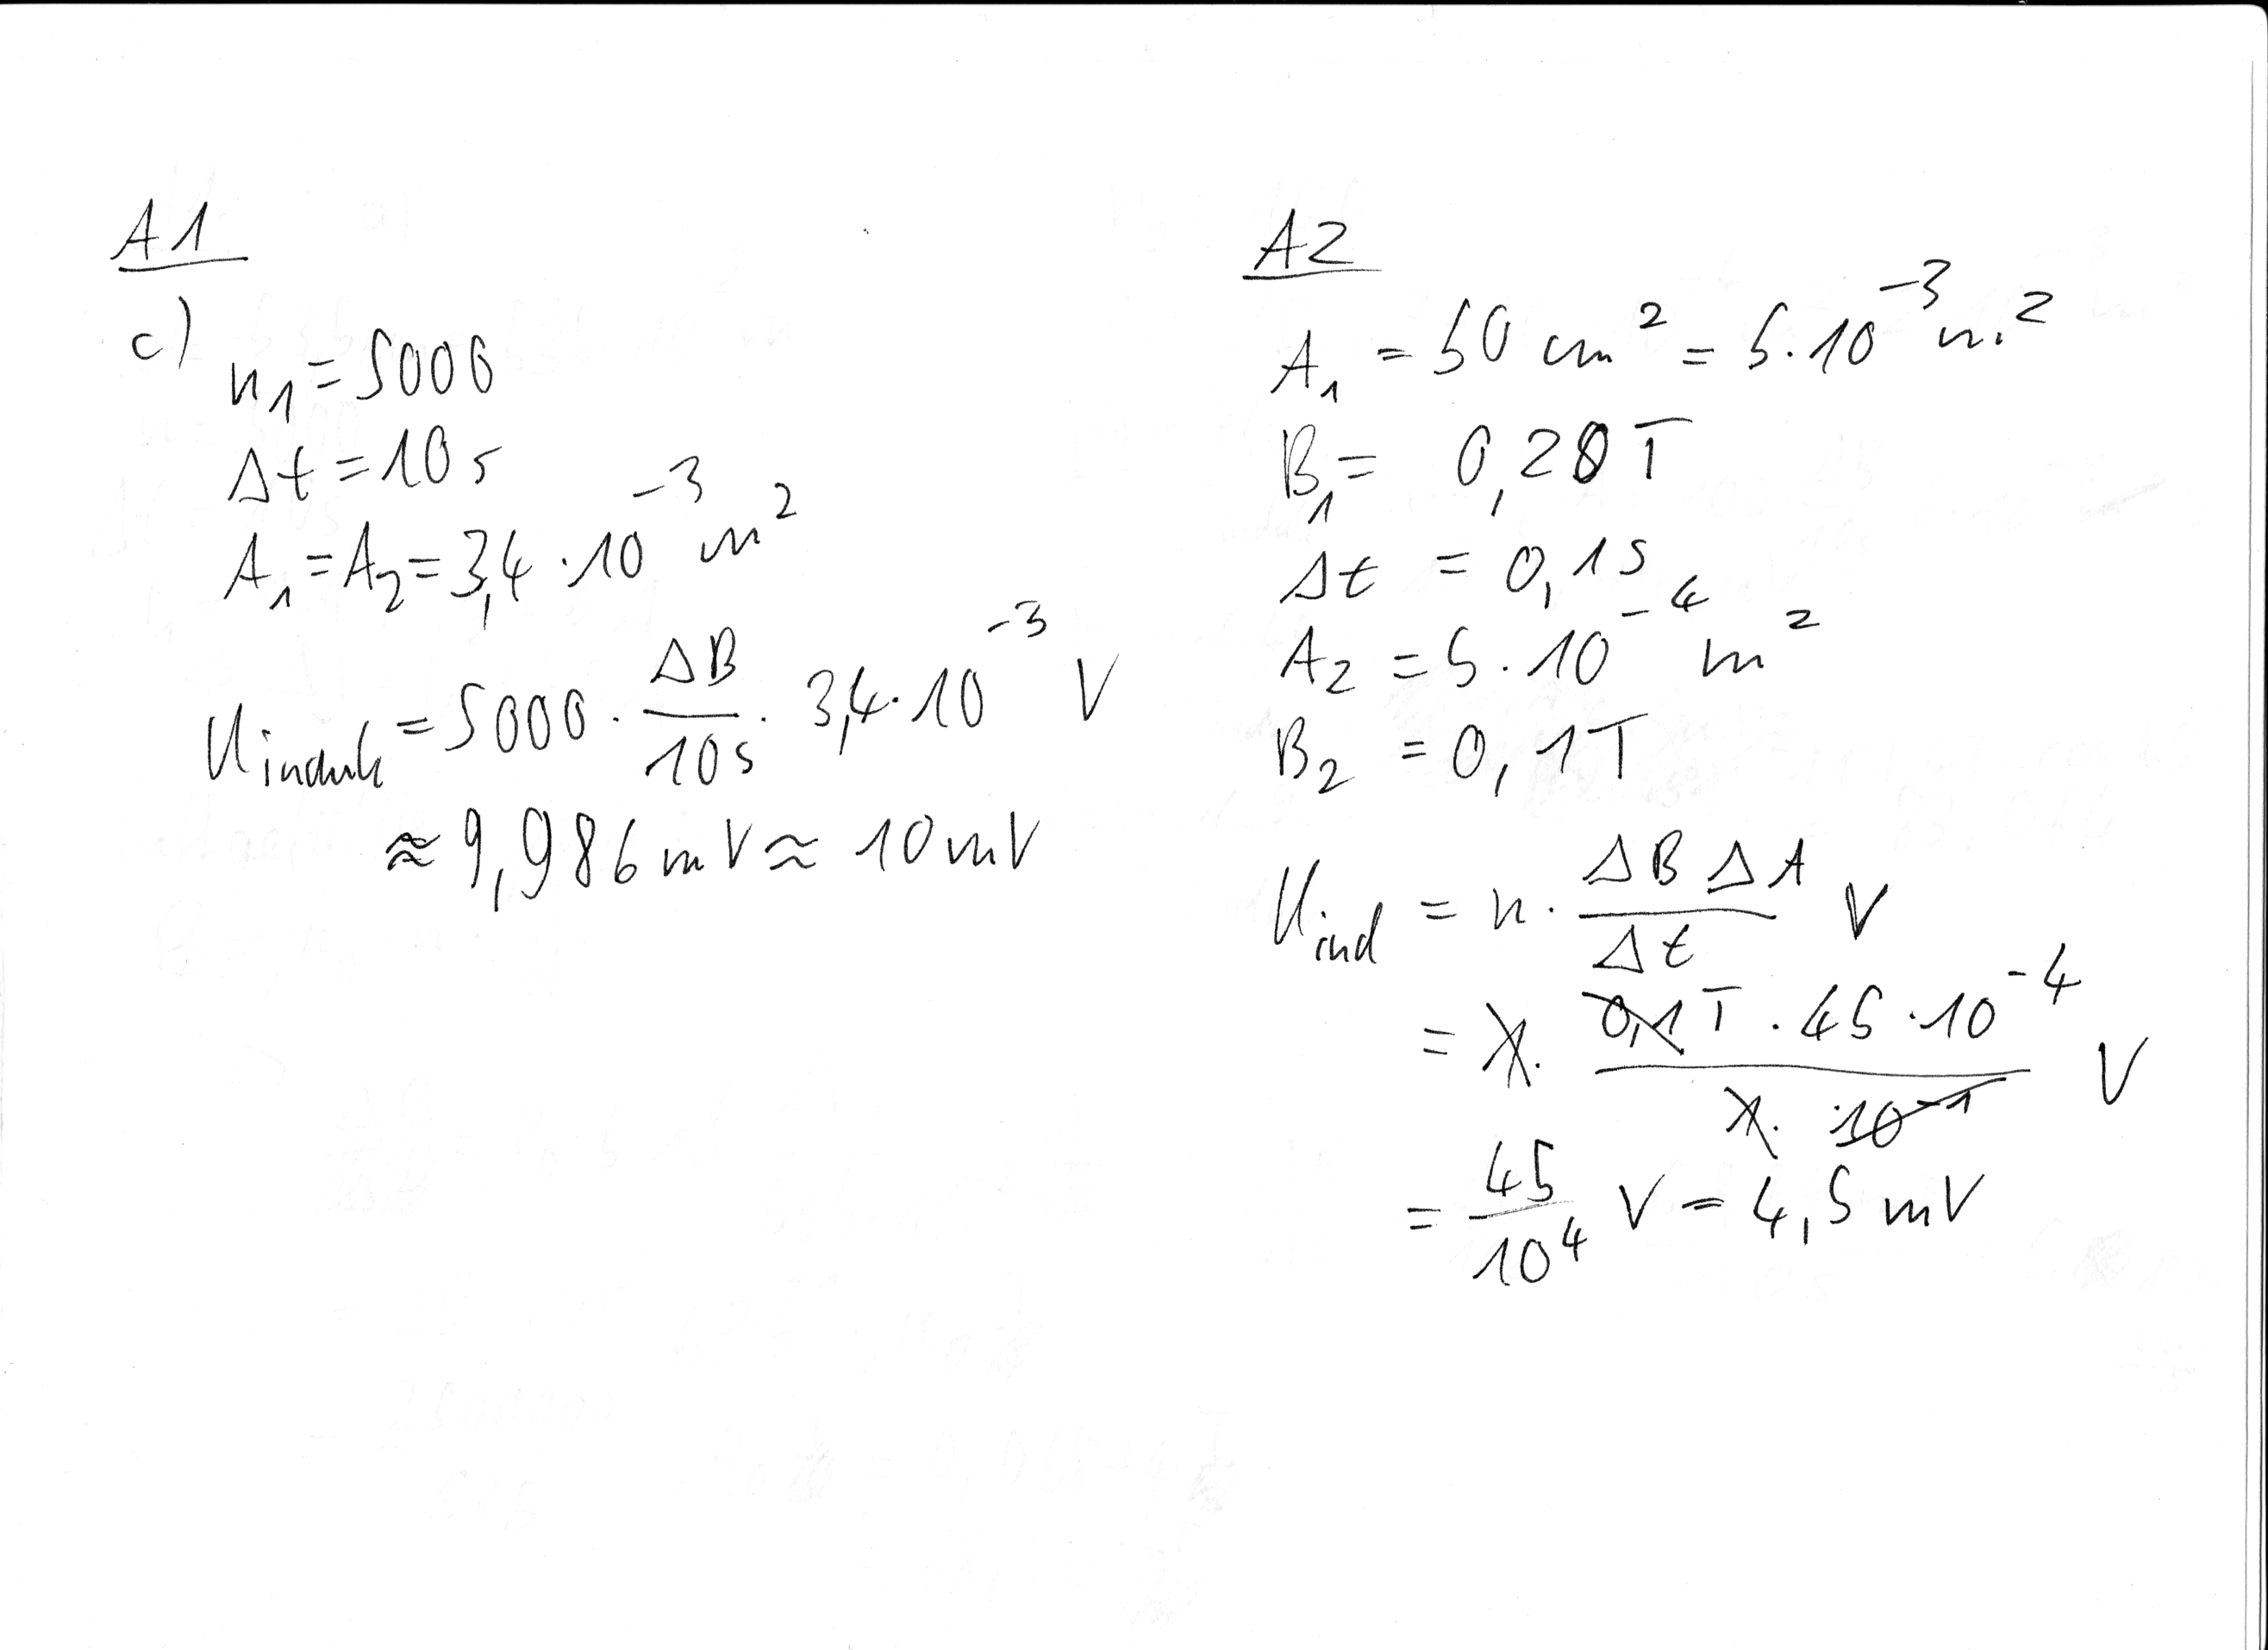 A1
c) n₁ = 5000
Δt = 10 s
A₁ = A₂ = 3,4 · 10⁻³ m²
U_induk = 5000 · ΔB/10s · 3,4 · 10⁻³ V
≈ 9,986 mV ≈ 10 mV
A2
A₁ = 50 cm² = 5 · 10⁻³ m²
B₁ = 0,20 T
Δt = 0,1 s
A₂ = 5 · 10⁻⁴ m²
B₂ = 0,1 T
U_ind = n · ΔB ΔA/Δt V
= 1 · 0,1 T · 45 · 10⁻⁴/1 · 10⁻¹ V
= 45/10⁴ V = 4,5 mV